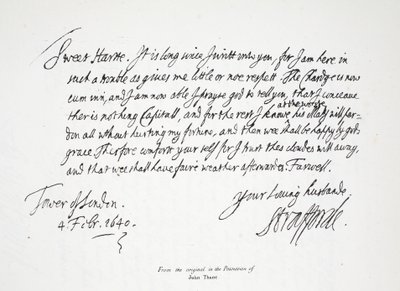 Sweet Harte. It is long since I writt unto you, for I am here in
such a trouble as gives me little or noe respett. The Chardge is now
cum inn, and I am now able I prayse god to tell you, that I conceave
ther is nothing Capitall, and for the rest I knowe at the worste his Maty will par-
don all without hurting my fortune, and then wee shall be happy by gods
grace. Therfore comfort your self, for I trust thes cloudes will away,
and that wee shall have faire weather afterwardes. Farwell.
Your loving husbande.
Tower of London
Strafforde.
4. Febr. 1640.
From the original in the Possession of
John Thane.